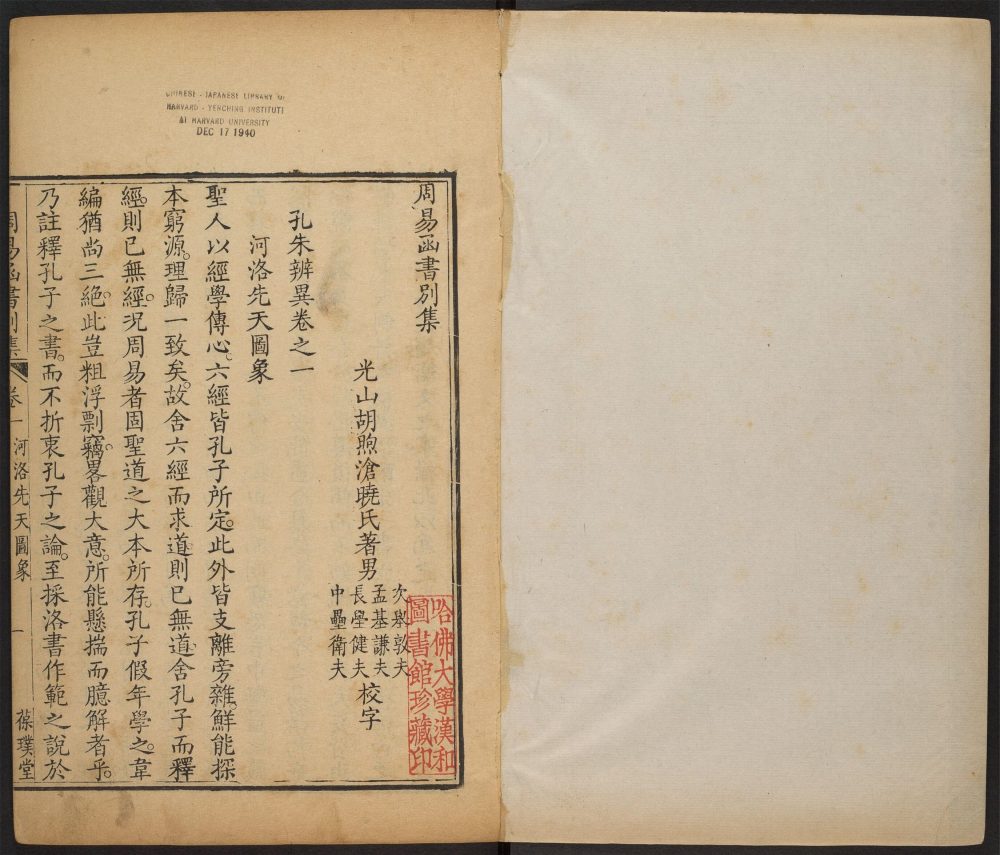 CHINESE - JAPANESE LIBRARY OF
HARVARD - YENCHING INSTITUTE
AT HARVARD UNIVERSITY
DEC 17 1940
周易函書別集
光山胡煦滄曉氏著男
次舉敦夫
孟基謙夫
長壆健夫
中壘衛夫
校字
孔朱辨異卷之一
河洛先天圖象
聖人以經學傳心。六經皆孔子所定。此外皆支離旁雜。鮮能探
本窮源。理歸一致矣。故舍六經而求道。則已無道。舍孔子而釋
經。則已無經。况周易者固聖道之大本所存。孔子假年學之。韋
編猶尚三絕。此豈粗浮剽竊。畧觀大意。所能懸揣而臆解者乎。
乃註釋孔子之書。而不折衷孔子之論。至採洛書作範之說於
周易函書別集
卷一
河洛先天圖象
一
葆璞堂
哈佛大學漢和
圖書館珍藏印